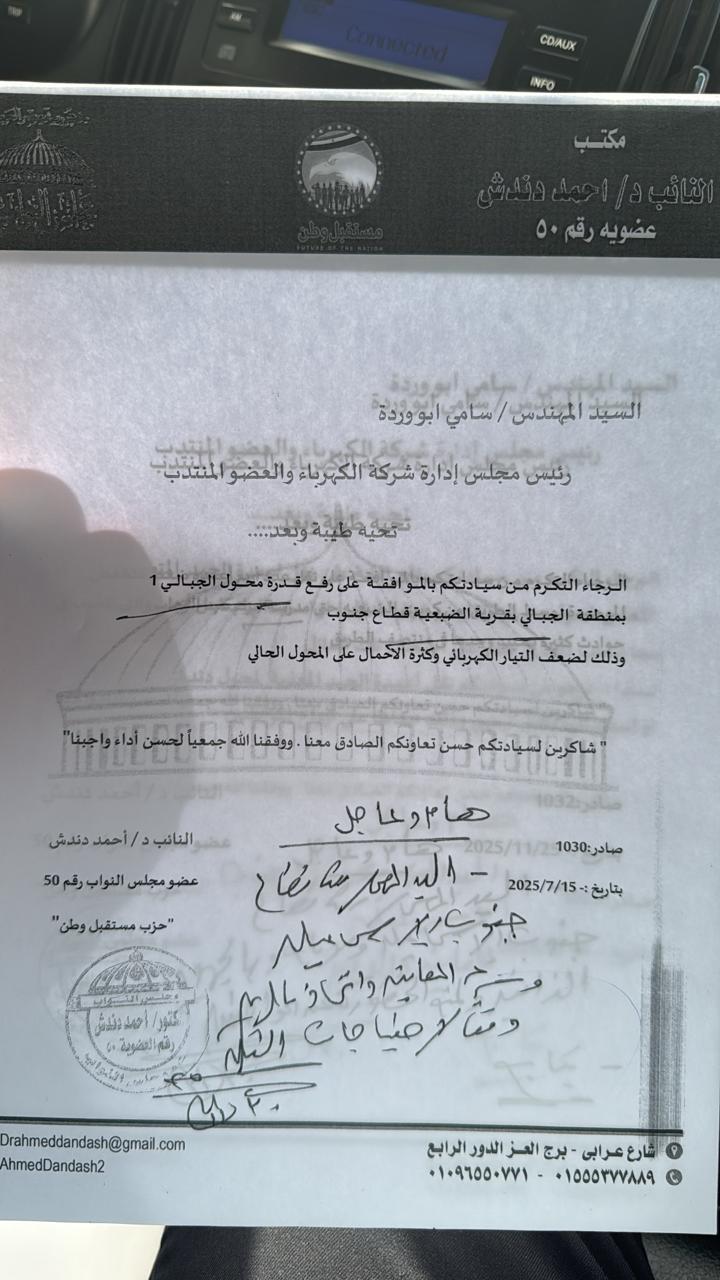 Connected
CD/AUX
INFO
AM
مكتب
النائب د/ احمد دندش
عضويه رقم ٥٠
مستقبل وطن
FUTURE OF THE NATION
السيد المهندس / سامي ابو وردة
رئيس مجلس إدارة شركة الكهرباء والعضو المنتدب
تحيه طيبة وبعد....
الرجاء التكرم من سيادتكم بالموافقة على رفع قدرة محول الجبالي 1
بمنطقة الجبالي بقرية الضبعية قطاع جنوب
وذلك لضعف التيار الكهربائي وكثرة الأحمال على المحول الحالي
" شاكرين لسيادتكم حسن تعاونكم الصادق معنا . ووفقنا الله جمعياً لحسن أداء واجبنا"
هام وعاجل
صادر:1030
النائب د / أحمد دندش
بتاريخ :- 2025/7/15
عضو مجلس النواب رقم 50
"حزب مستقبل وطن"
- السيد المهندس
جنوب
وسرعة المعاينة واتخاذ اللازم
وفقا لاحتياجات
مجلس النواب
دكتور/ أحمد دندش
رقم العضوية ٥٠
شارع عرابى - برج العز الدور الرابع
٠١٥٥٥٣٧٧٨٨٩ - ٠١٠٩٦٥٥٠٧٧١
Drahmeddandash@gmail.com
AhmedDandash2